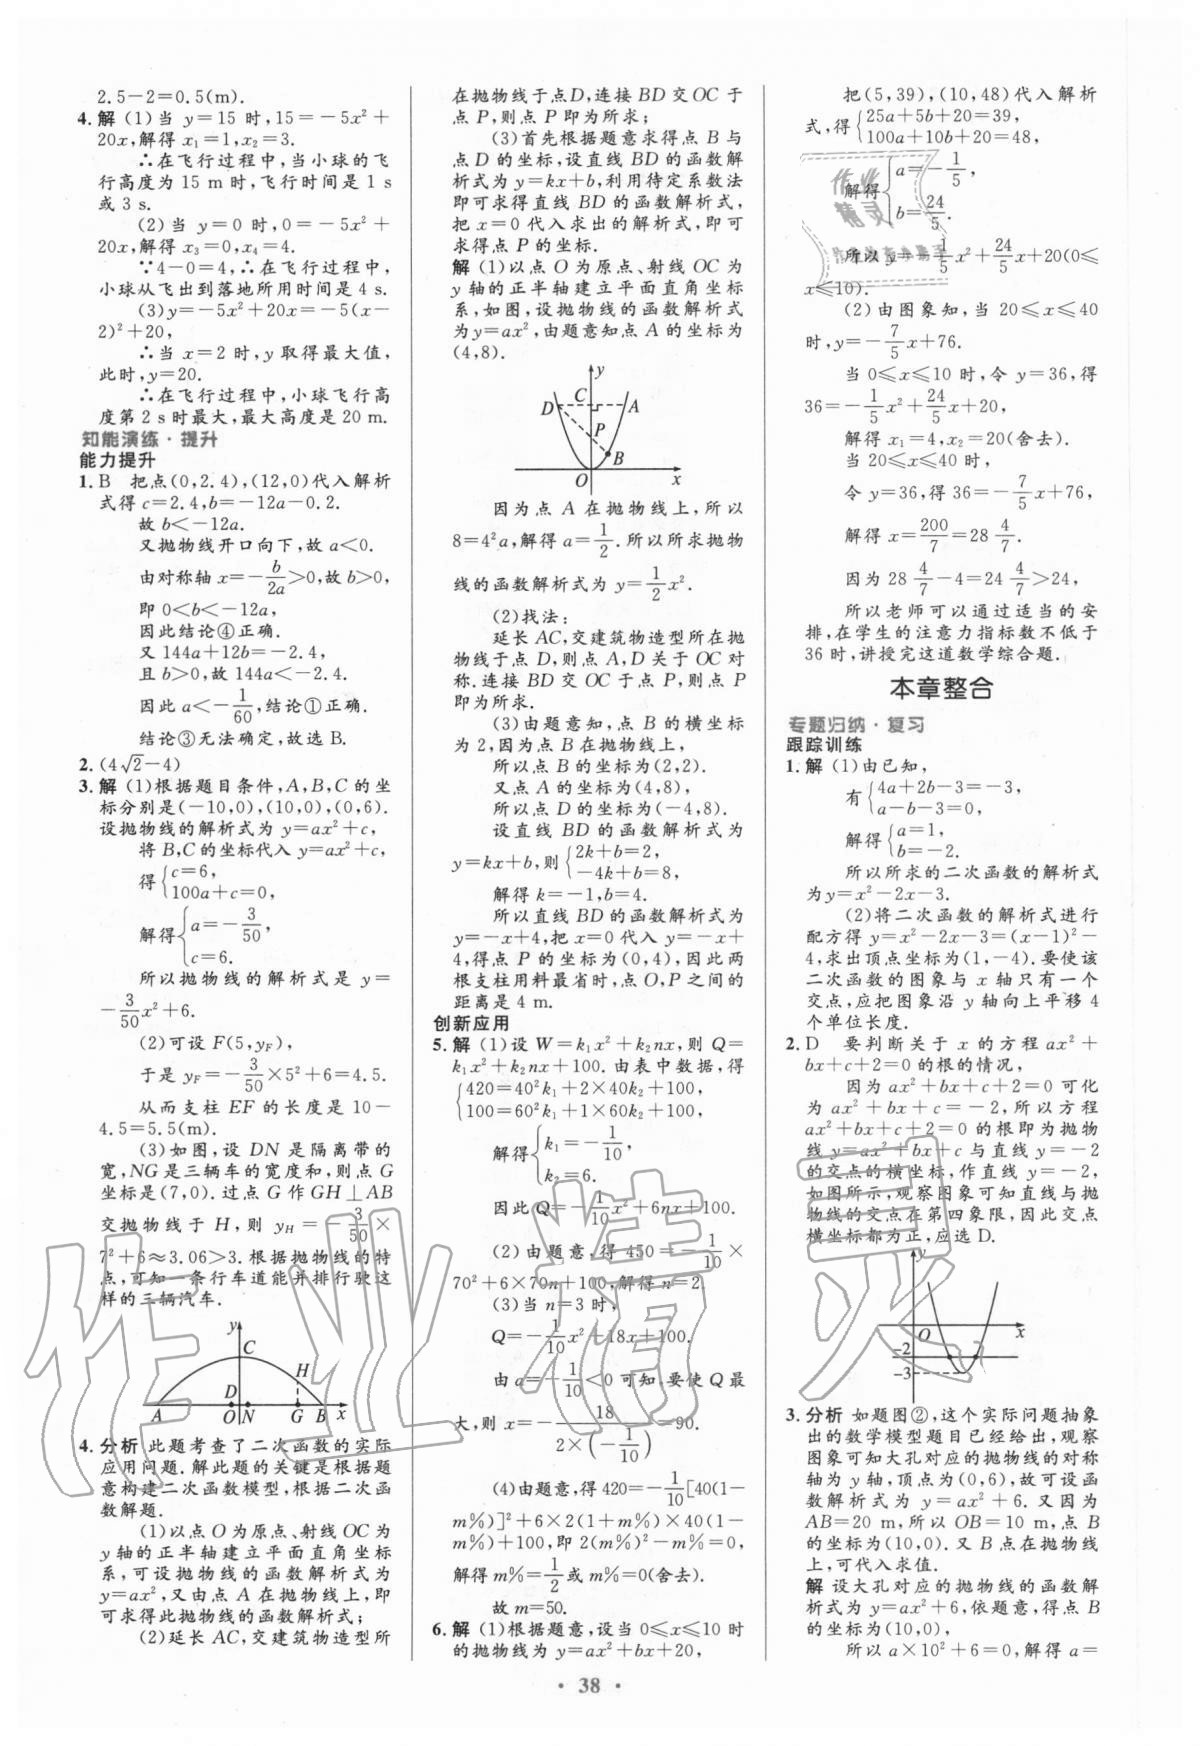 2.5-2=0.5(m).
4. 解 (1)当 y=15 时,15=-5x²+
20x,解得 x₁=1,x₂=3.
∴在飞行过程中,当小球的飞
行高度为 15 m时,飞行时间是 1 s
或 3 s.
(2)当 y=0 时,0=-5x²+
20x,解得 x₃=0,x₄=4.
∵4-0=4,∴在飞行过程中,
小球从飞出到落地所用时间是 4 s.
(3)y=-5x²+20x=-5(x-
2)²+20,
∴当 x=2 时,y 取得最大值,
此时,y=20.
∴在飞行过程中,小球飞行高
度第 2 s时最大,最大高度是 20 m.
知能演练·提升
能力提升
1. B 把点(0,2.4),(12,0)代入解析
式得 c=2.4,b=-12a-0.2.
故 b<-12a.
又抛物线开口向下,故 a<0.
由对称轴 x=-b/2a>0,故 b>0,
即 0<b<-12a,
因此结论④正确.
又 144a+12b=-2.4,
且 b>0,故 144a<-2.4,
因此 a<-1/60,结论①正确.
结论③无法确定,故选 B.
2. (4√2-4)
3. 解 (1)根据题目条件,A,B,C 的坐
标分别是(-10,0),(10,0),(0,6).
设抛物线的解析式为 y=ax²+c,
将 B,C 的坐标代入 y=ax²+c,
得{c=6,
100a+c=0,
解得{a=-3/50,
c=6.
所以抛物线的解析式是 y=
-3/50x²+6.
(2)可设 F(5,y_F),
于是 y_F=-3/50×5²+6=4.5.
从而支柱 EF 的长度是 10-
4.5=5.5(m).
(3)如图,设 DN 是隔离带的
宽,NG是三辆车的宽度和,则点 G
坐标是(7,0). 过点 G 作 GH⊥AB
交抛物线于 H,则 y_H=-3/50×
7²+6≈3.06>3. 根据抛物线的特
点,可知一条行车道能并排行驶这
样的三辆汽车.
y
C
H
D
A O N G B x
4. 分析 此题考查了二次函数的实际
应用问题.解此题的关键是根据题
意构建二次函数模型,根据二次函
数解题.
(1)以点 O为原点、射线 OC为
y 轴的正半轴建立平面直角坐标
系,可设抛物线的函数解析式为
y=ax²,又由点 A 在抛物线上,即
可求得此抛物线的函数解析式;
(2)延长 AC,交建筑物造型所
在抛物线于点D,连接 BD 交 OC 于
点 P,则点 P 即为所求;
(3)首先根据题意求得点 B 与
点 D 的坐标,设直线 BD 的函数解
析式为 y=kx+b,利用待定系数法
即可求得直线 BD 的函数解析式,
把 x=0 代入求出的解析式,即可
求得点 P 的坐标.
解 (1)以点 O 为原点、射线 OC 为
y 轴的正半轴建立平面直角坐标
系,如图,设抛物线的函数解析式
为y=ax²,由题意知点 A 的坐标为
(4,8).
y
D C A
P
B
O x
因为点 A 在抛物线上,所以
8=4²a,解得 a=1/2.所以所求抛物
线的函数解析式为 y=1/2x².
(2)找法:
延长 AC,交建筑物造型所在抛
物线于点 D,则点 A,D 关于 OC 对
称.连接 BD 交 OC 于点 P,则点 P
即为所求.
(3)由题意知,点 B 的横坐标
为 2,因为点 B 在抛物线上,
所以点 B 的坐标为(2,2).
又点 A 的坐标为(4,8),
所以点 D 的坐标为(-4,8).
设直线 BD 的函数解析式为
y=kx+b,则{2k+b=2,
-4k+b=8,
解得 k=-1,b=4.
所以直线 BD 的函数解析式为
y=-x+4,把 x=0 代入 y=-x+
4,得点 P 的坐标为(0,4),因此两
根支柱用料最省时,点 O,P 之间的
距离是 4 m.
创新应用
5. 解 (1)设 W=k₁x²+k₂nx,则 Q=
k₁x²+k₂nx+100. 由表中数据,得
{420=40²k₁+2×40k₂+100,
100=60²k₁+1×60k₂+100,
解得{k₁=-1/10,
k₂=6.
因此 Q=-1/10x²+6nx+100.
(2)由题意,得 450=-1/10×
70²+6×70n+100,解得 n=2.
(3)当 n=3 时,
Q=-1/10x²+18x+100.
由 a=-1/10<0 可知,要使 Q 最
大,则 x=-18/(2×(-1/10))=90.
(4)由题意,得 420=-1/10[40(1-
m%)]²+6×2(1+m%)×40(1-
m%)+100,即 2(m%)²-m%=0,
解得 m%=1/2或 m%=0(舍去).
故 m=50.
6. 解 (1)根据题意,设当 0≤x≤10 时
的抛物线为 y=ax²+bx+20,
把(5,39),(10,48)代入解析
式,得{25a+5b+20=39,
100a+10b+20=48,
解得{a=-1/5,
b=24/5.
所以 y=-1/5x²+24/5x+20(0≤
x≤10).
(2)由图象知,当 20≤x≤40
时,y=-7/5x+76.
当 0≤x≤10 时,令 y=36,得
36=-1/5x²+24/5x+20,
解得 x₁=4,x₂=20(舍去).
当 20≤x≤40 时,
令 y=36,得 36=-7/5x+76,
解得 x=200/7=28 4/7.
因为 28 4/7-4=24 4/7>24,
所以老师可以通过适当的安
排,在学生的注意力指标数不低于
36 时,讲授完这道数学综合题.
本章整合
专题归纳·复习
跟踪训练
1. 解 (1)由已知,
有{4a+2b-3=-3,
a-b-3=0,
解得{a=1,
b=-2.
所以所求的二次函数的解析式
为y=x²-2x-3.
(2)将二次函数的解析式进行
配方得 y=x²-2x-3=(x-1)²-
4,求出顶点坐标为(1,-4). 要使该
二次函数的图象与 x 轴只有一个
交点,应把图象沿 y 轴向上平移 4
个单位长度.
2. D 要判断关于 x 的方程 ax²+
bx+c+2=0 的根的情况,
因为 ax²+bx+c+2=0 可化
为 ax²+bx+c=-2,所以方程
ax²+bx+c+2=0 的根即为抛物
线 y=ax²+bx+c与直线 y=-2
的交点的横坐标,作直线 y=-2,
如图所示,观察图象可知直线与抛
物线的交点在第四象限,因此交点
横坐标都为正,应选 D.
y
O x
-2
-3
3. 分析 如题图②,这个实际问题抽象
出的数学模型题目已经给出,观察
图象可知大孔对应的抛物线的对称
轴为 y 轴,顶点为(0,6),故可设函
数解析式为 y=ax²+6. 又因为
AB=20 m,所以 OB=10 m,点 B
的坐标为(10,0). 又 B 点在抛物线
上,可代入求值.
解 设大孔对应的抛物线的函数解
析式为 y=ax²+6,依题意,得点 B
的坐标为(10,0),
所以 a×10²+6=0,解得 a=
· 38 ·
作业精灵
作业精灵